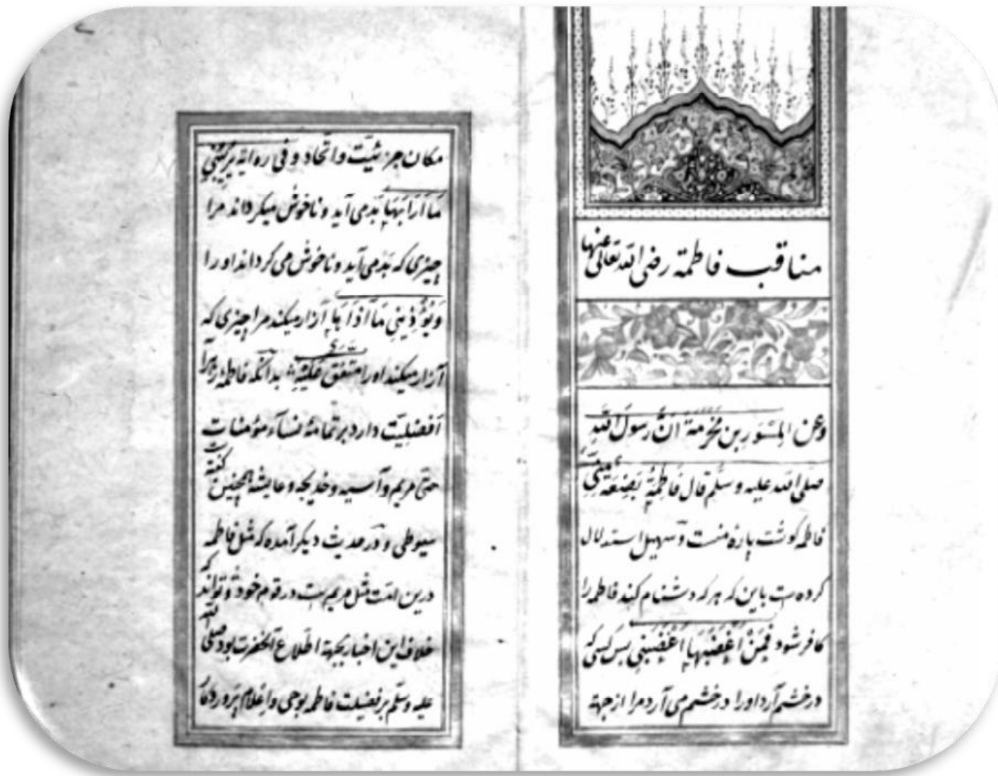 مناقب فاطمة رضی الله تعالی عنها
وعن المسور بن مخرمة انّ رسول الله
صلی الله علیه وسلّم قال فاطمةُ بَضعَة مِنّی
فاطمه کوشت پارهٔ منست و سهیلی استدلال
کرده ست باین که هرکه دشنام کند فاطمه را
کافر شود فَمَنْ اَغْضَبَها اَغْضَبَنی پس کسی که
در خشم آرد او را در خشم می آرد مرا از جهة
مکان جزئیت و اتحاد و فی روایة یُریبُنی
مَا اَرَابَهَا بَد می آید و ناخوش میکرداند مرا
چیزی که بَد می آید و ناخوش می کرداند او را
وَیُؤْذِینِی مَا آذَاهَا آزار میکند مرا چیزی که
آزار میکند او را متفق علیه بدانکه فاطمهٔ زهرا
افضلیت دارد بر تمامهٔ نساء مؤمنات
حتّی مریم و آسیه و خدیجه و عایشه همچنین گفته
سیوطی و در حدیث دیکر آمده که مثل فاطمه
درین امّت مثل مریم ست در قوم خود و تواند که
خلاف این اخبار بجهة اطّلاع آنحضرت بود صلی الله
علیه وسلّم بر فضیلت فاطمه بوحی و اعلام پروردکار